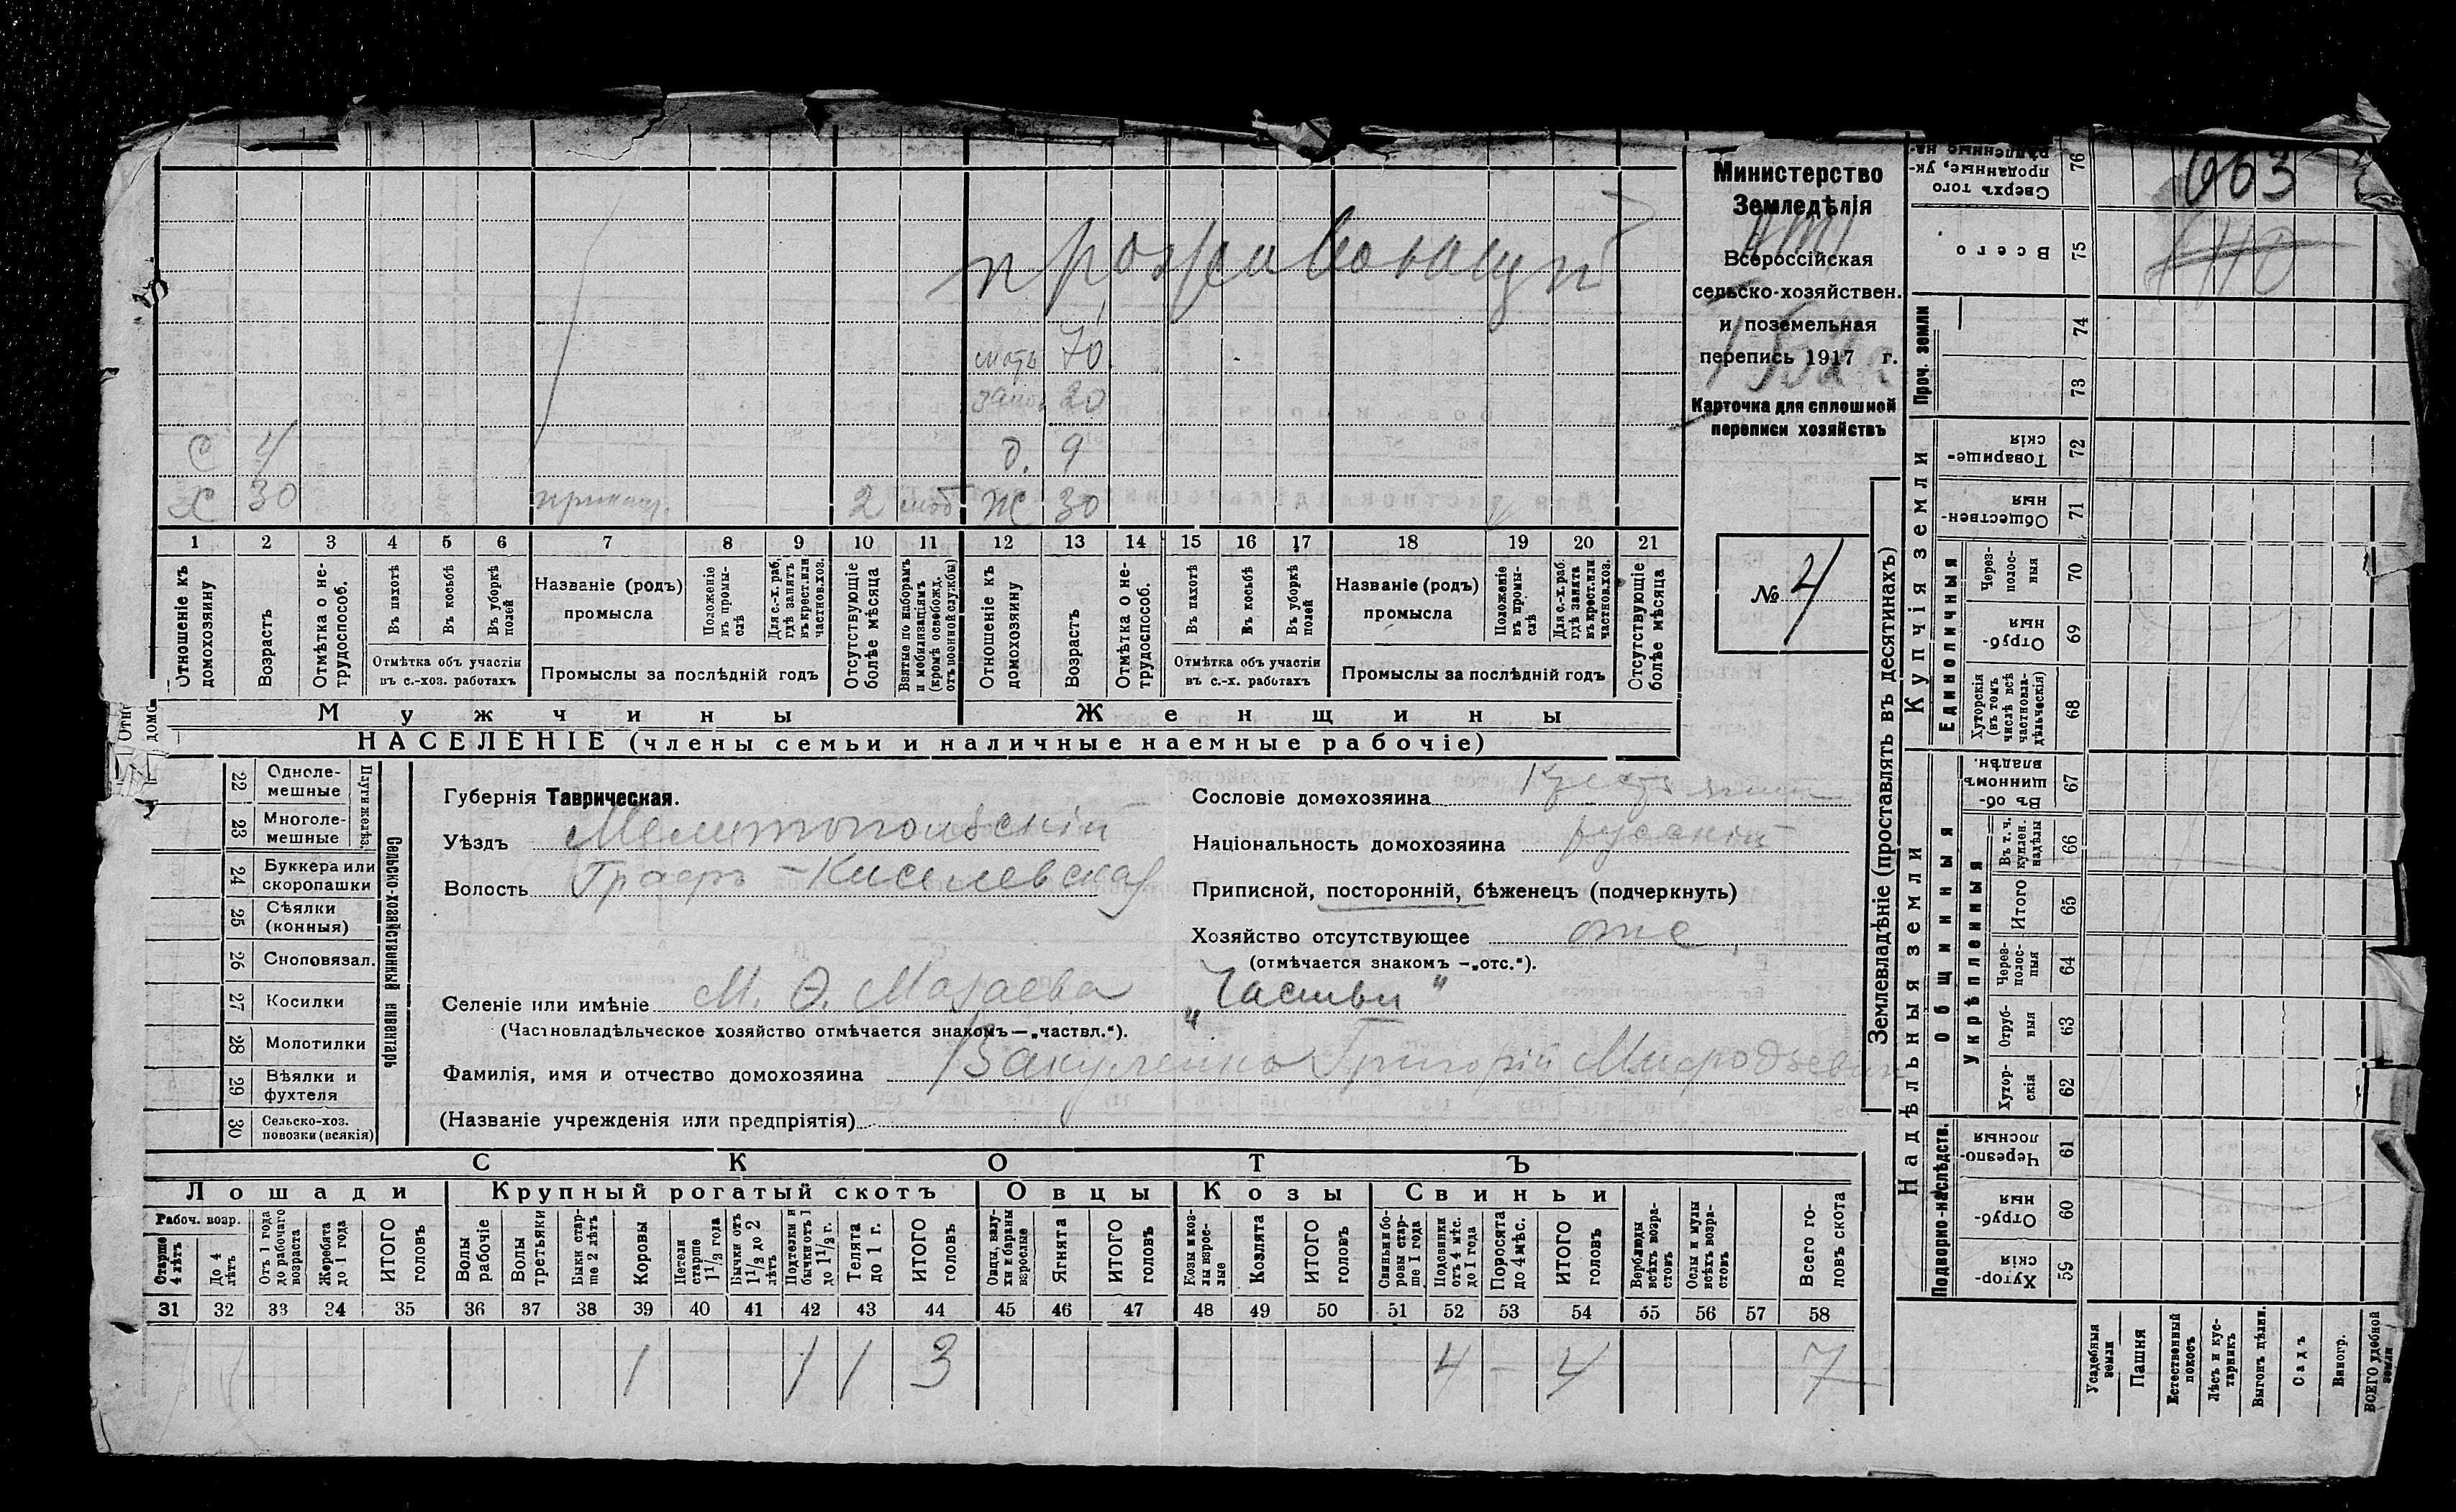 проживающій
мать 70
20
С 4 д. 9
Х 30 2 моб Ж 30
1 2 3 4 5 6 7 8 9 10 11 12 13 14 15 16 17 18 19 20 21
Отношеніе къ домохозяину
Возрастъ
Отмѣтка о нетрудоспособ.
Въ пахотѣ
Въ косьбѣ
Въ уборкѣ полей
Отмѣтка объ участіи въ с.-хоз. работахъ
Названіе (родъ) промысла
Положеніе въ промыслѣ
Для с.-х. раб, гдѣ занятъ въ крест. или частнов. хоз.
Промыслы за послѣдній годъ
Отсутствующіе болѣе мѣсяца
Взятые по наборамъ и мобилизаціямъ (кромѣ освобожд. отъ военной службы)
Отношеніе къ домохозяину
Возрастъ
Отмѣтка о нетрудоспособ.
Въ пахотѣ
Въ косьбѣ
Въ уборкѣ полей
Отмѣтка объ участіи въ с.-х. работахъ
Названіе (родъ) промысла
Положеніе въ промыслѣ
Для с.-х. раб. гдѣ занята въ крест. или частнов. хоз.
Промыслы за послѣдній годъ
Отсутствующіе болѣе мѣсяца
Мужчины Женщины
НАСЕЛЕНІЕ (члены семьи и наличные наемные рабочіе)
Министерство
Земледѣлія
Всероссійская
сельско-хозяйствен.
и поземельная
перепись 1917 г.
Карточка для сплошной
переписи хозяйствъ
№ 4
22 Однолемешные
23 Многолемешные
Плуги желѣз.
24 Буккера или скоропашки
25 Сѣялки (конныя)
26 Сноповязал.
27 Косилки
28 Молотилки
29 Вѣялки и фухтеля
30 Сельско-хоз. повозки (всякія)
Сельско-хозяйственный инвентарь
Губернія Таврическая.
Уѣздъ Мелитопольскій
Волость Графъ-Киселевская
Селеніе или имѣніе М. Ѳ. Мазаева „Частвл"
(Частновладѣльческое хозяйство отмѣчается знакомъ—„частвл.“).
Фамилія, имя и отчество домохозяина Вакуленко Григорій Мифодьевич
(Названіе учрежденія или предпріятія)
Сословіе домохозяина крестьянин
Національность домохозяина русскій
Приписной, посторонній, бѣженецъ (подчеркнуть)
Хозяйство отсутствующее отс
(отмѣчается знакомъ —„отс.“).
СКОТЪ
Лошади Крупный рогатый скотъ Овцы Козы Свиньи
Рабоч. возр.
Старше 4 лѣтъ
До 4 лѣтъ
Отъ 1 года до рабочаго возраста
Жеребята до 1 года
ИТОГО головъ
Волы рабочіе
Волы третьяки
Быки старше 2 лѣтъ
Коровы
Нетели старше 1 1/2 года
Бычки отъ 1 1/2 до 2 лѣтъ
Подтелки и бычки отъ 1 до 1 1/2 г.
Телята до 1 г.
ИТОГО головъ
Овцы, валухи и бараны взрослые
Ягнята
ИТОГО головъ
Козы и козлы взрослые
Козлята
ИТОГО головъ
Свиньи боровы старше 1 года
Подсвинки отъ 4 мѣс. до 1 года
Поросята до 4 мѣс.
ИТОГО головъ
Верблюды всѣхъ возрастовъ
Ослы и мулы всѣхъ возрастовъ
Всего головъ скота
31 32 33 34 35 36 37 38 39 40 41 42 43 44 45 46 47 48 49 50 51 52 53 54 55 56 57 58
1 1 1 3 4 - 4 7
Землевладѣніе (проставлять въ десятинахъ)
Надѣльныя земли
Купчія земли
Проч. земли
Подворно-наслѣдств.
Общинныя
Укрѣпленныя
Единоличныя
Хуторскія 59
Отрубныя 60
Черезполосныя 61
Хуторскія 62
Отрубныя 63
Черезполосныя 64
Итого 65
Въ т. ч. куплен. надѣлы 66
Въ общинномъ владѣн. 67
Хуторскія (въ томъ числѣ всѣ частновладѣльческія) 68
Отрубныя 69
Черезполосныя 70
Общественныя 71
Товарищескія 72
73
74
Всего 75
Сверхъ того проданные, ук- 76
663
Усадебныя земли
Пашня
Естественный покосъ
Лѣсъ и кустарникъ
Выгонъ цѣлин.
Садъ
Виногр.
ВСЕГО удобной земли